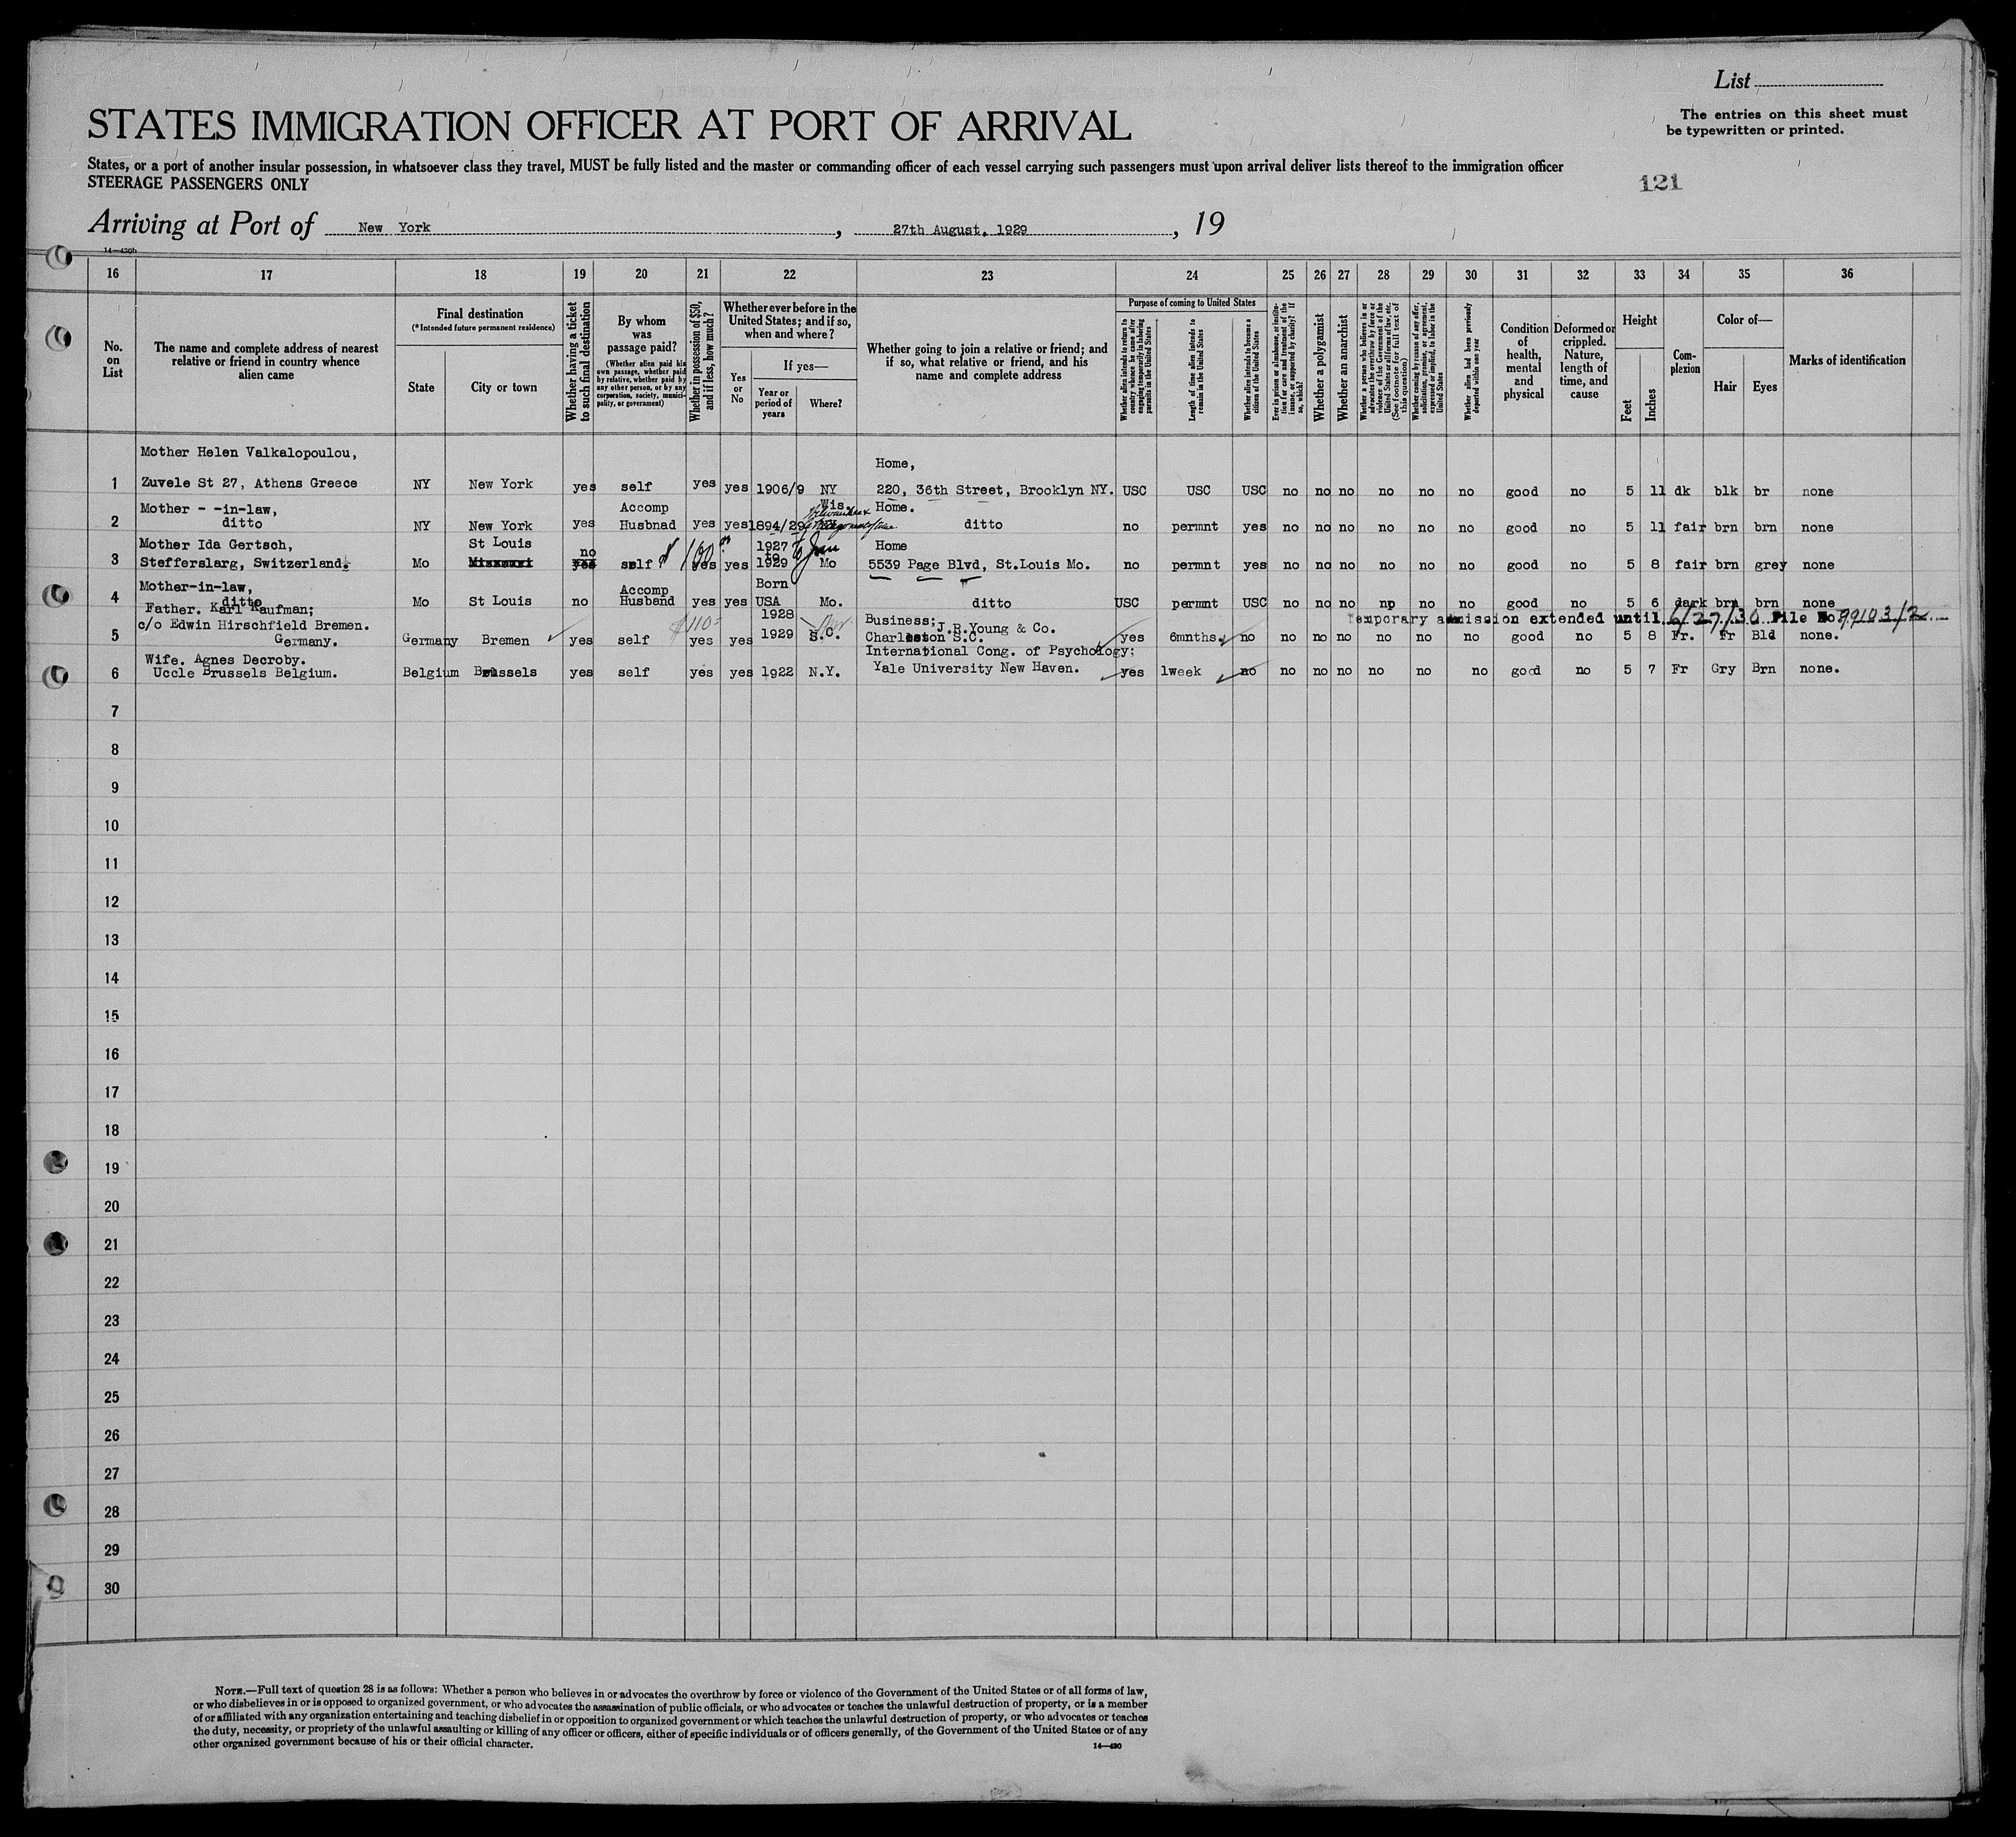 List
The entries on this sheet must
be typewritten or printed.
STATES IMMIGRATION OFFICER AT PORT OF ARRIVAL
States, or a port of another insular possession, in whatsoever class they travel, MUST be fully listed and the master or commanding officer of each vessel carrying such passengers must upon arrival deliver lists thereof to the immigration officer
STEERAGE PASSENGERS ONLY
121
Arriving at Port of New York, 27th August, 1929, 19
14—430b
16 17 18 19 20 21 22 23 24 25 26 27 28 29 30 31 32 33 34 35 36
No. on List
The name and complete address of nearest relative or friend in country whence alien came
Final destination
(*Intended future permanent residence)
State
City or town
Whether having a ticket to such final destination
By whom was passage paid?
(Whether alien paid his own passage, whether paid by relative, whether paid by any other person, or by any corporation, society, municipality, or government)
Whether in possession of $50, and if less, how much?
Whether ever before in the United States; and if so, when and where?
Yes or No
If yes—
Year or period of years
Where?
Whether going to join a relative or friend; and if so, what relative or friend, and his name and complete address
Purpose of coming to United States
Whether alien intends to return to country whence he came after engaging temporarily in laboring pursuits in the United States
Length of time alien intends to remain in the United States
Whether alien intends to become a citizen of the United States
Ever in prison or almshouse, or institution for care and treatment of the insane, or supported by charity? If so, which?
Whether a polygamist
Whether an anarchist
Whether a person who believes in or advocates the overthrow by force or violence of the Government of the United States or all forms of law, etc. (See footnote for full text of this question)
Whether coming by reason of any offer, solicitation, promise, or agreement, expressed or implied, to labor in the United States
Whether alien had been previously deported within one year
Condition of health, mental and physical
Deformed or crippled. Nature, length of time, and cause
Height
Feet
Inches
Complexion
Color of—
Hair
Eyes
Marks of identification
Mother Helen Valkalopoulou, Home,
1 Zuvele St 27, Athens Greece NY New York yes self yes yes 1906/9 NY 220, 36th Street, Brooklyn NY. USC USC USC no no no no no no good no 5 11 dk blk br none
Mother - -in-law, Accomp Wis. Home.
2 ditto NY New York yes Husbnad yes yes 1894/29 ditto no permnt yes no no no no no no good no 5 11 fair brn brn none
Mother Ida Gertsch, St Louis no $100 1927 to Home
3 Stefferslarg, Switzerland. Mo Missouri yes self yes yes 1929 Mo 5539 Page Blvd, St.Louis Mo. no permnt yes no no no no no no good no 5 8 fair brn grey none
Mother-in-law, Accomp Born
4 ditto Mo St Louis no Husband yes yes USA Mo. ditto USC permnt USC no no no no no no good no 5 6 dark brn brn none
Father. Karl Kaufman; 1928 Business; J.R.Young & Co. Temporary admission extended until 6/27/30 File No 99103/2
c/o Edwin Hirschfield Bremen. $110-
5 Germany. Germany Bremen yes self yes yes 1929 S.C. Charleston S.C. yes 6mnths. no no no no no no no good no 5 8 Fr. Fr Bld none.
Wife. Agnes Decroby. International Cong. of Psychology;
6 Uccle Brussels Belgium. Belgium Brussels yes self yes yes 1922 N.Y. Yale University New Haven. yes 1week no no no no no no no good no 5 7 Fr Gry Brn none.
7
8
9
10
11
12
13
14
15
16
17
18
19
20
21
22
23
24
25
26
27
28
29
30
NOTE.—Full text of question 28 is as follows: Whether a person who believes in or advocates the overthrow by force or violence of the Government of the United States or of all forms of law,
or who disbelieves in or is opposed to organized government, or who advocates the assassination of public officials, or who advocates or teaches the unlawful destruction of property, or is a member
of or affiliated with any organization entertaining and teaching disbelief in or opposition to organized government or which teaches the unlawful destruction of property, or who advocates or teaches
the duty, necessity, or propriety of the unlawful assaulting or killing of any officer or officers, either of specific individuals or of officers generally, of the Government of the United States or of any
other organized government because of his or their official character.
14—430